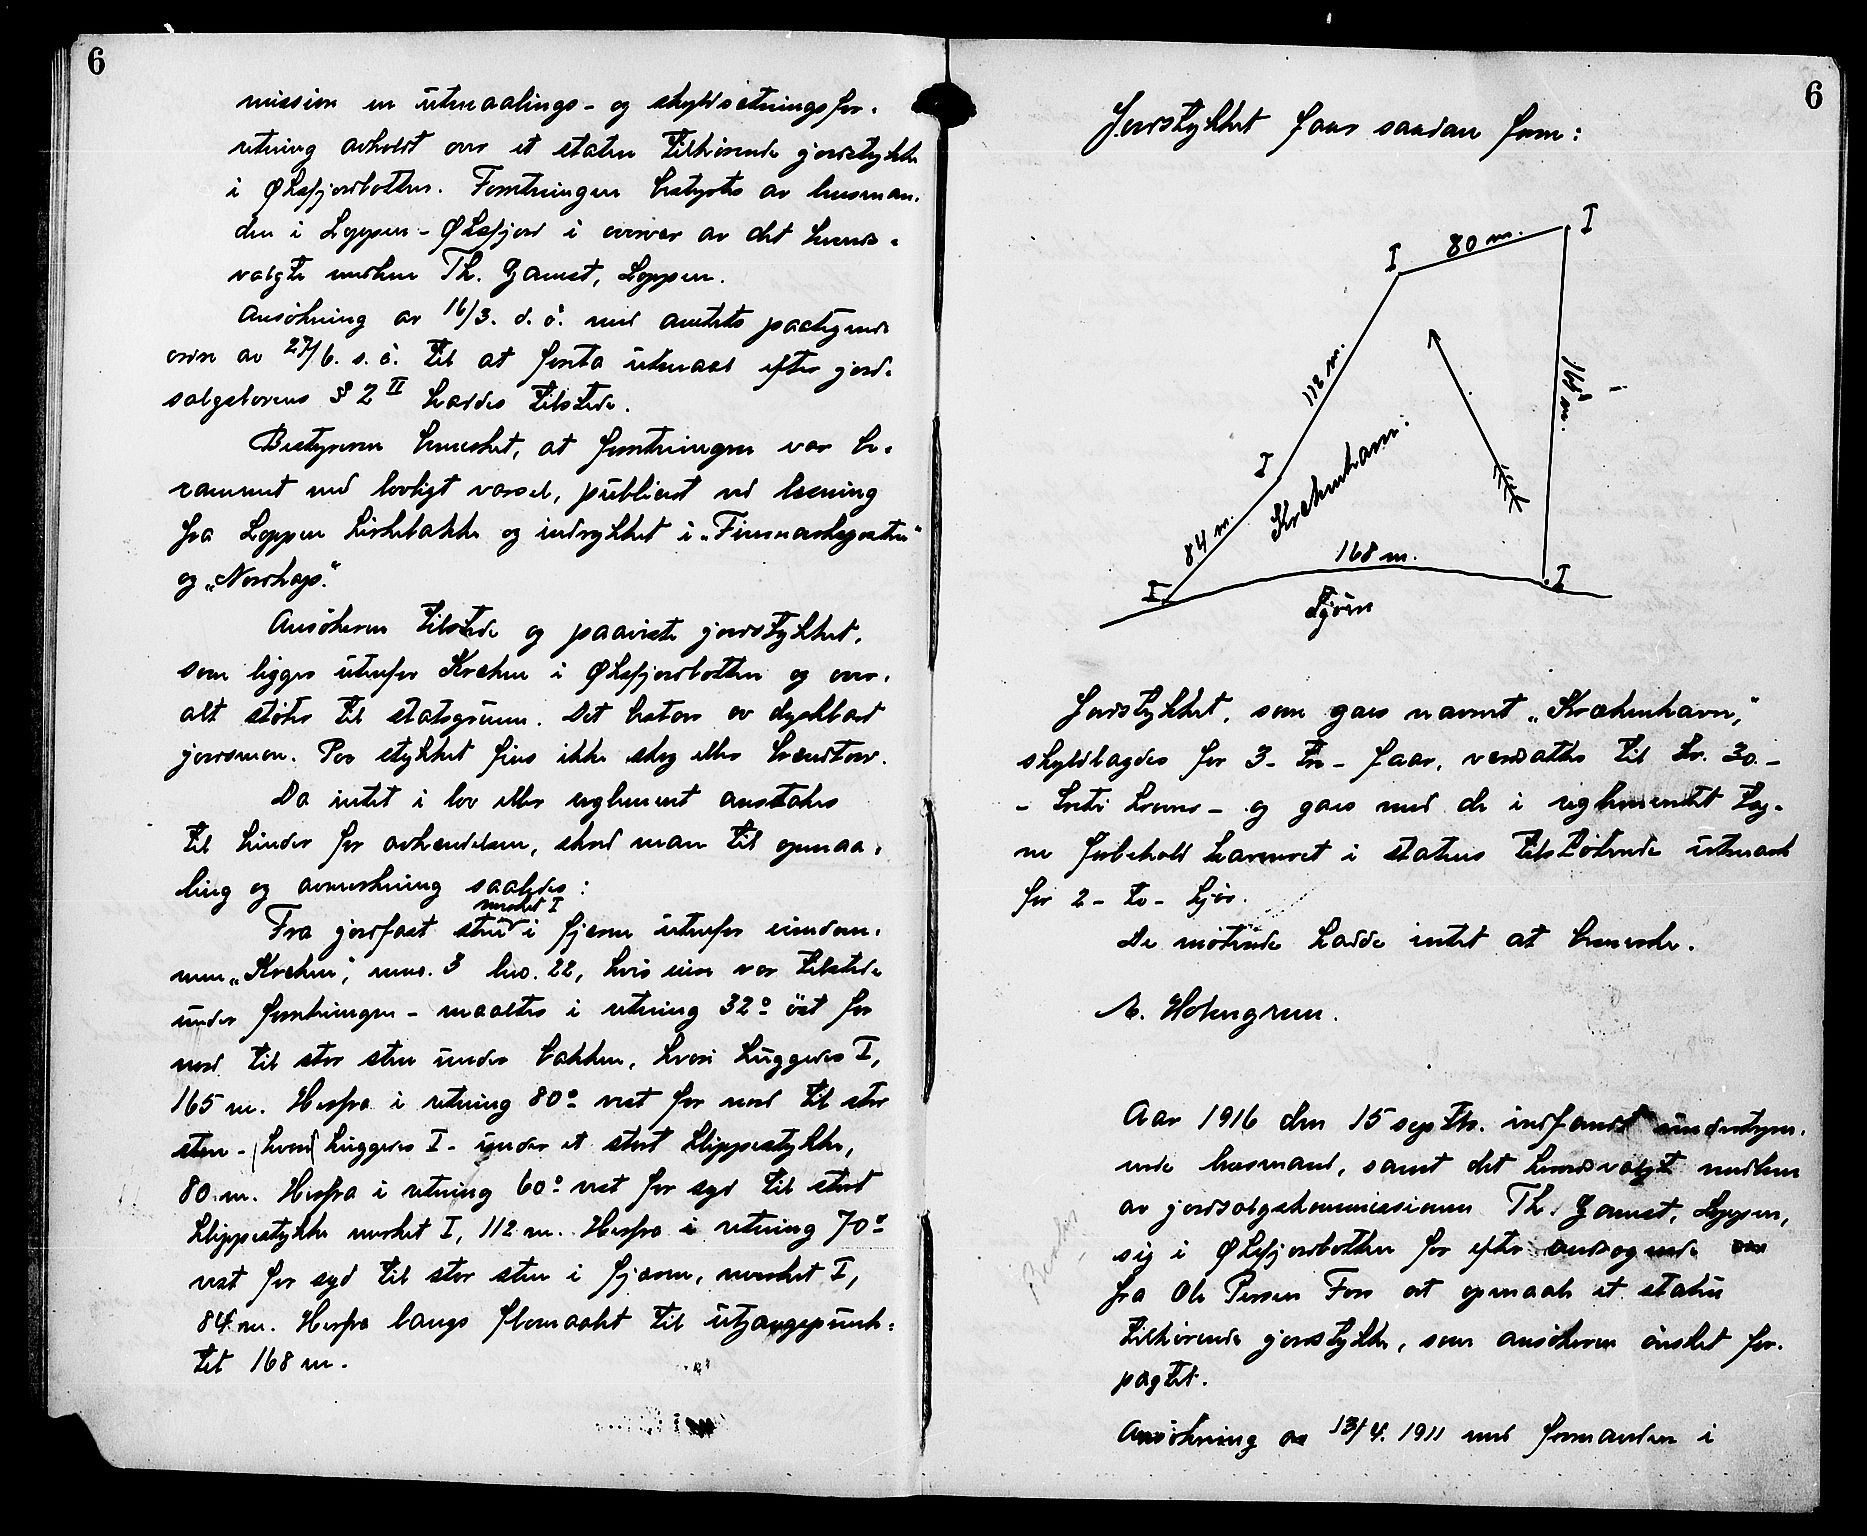 6
mission en utmaalings- og skyldsætningsfor-
retning avholdt over et staten tilhörende jordstykke
i Øksfjordbotten. Forretningen bestyrtes av lensman-
den i Loppen-Øksfjord i overvær av det herreds-
valgte medlem Th. Gamst, Loppen.
Ansökning av 16/3. d. å. med amtets paategnede
ordre av 27/6. s. å. til at foreta utmaal efter jord-
salgslovens § 2 II hadde tilstede.
Bestyreren bemerket, at forretningen var be-
rammet med lovligt varsel, publicert ved læsning
fra Loppen kirkebakke og indrykket i „Finmarksposten"
og „Nordkap".
Ansökeren tilstede og paaviste jordstykket,
som ligger utenfor Kræken i Øksfjordbotten og over-
alt stöter til statsgrund. Det bestaar av dyrkbart
jordsmon. Paa stykket fins ikke skog eller brændtorv.
Da intet i lov eller reglement ansattes
til hinder for avhændelsen, skred man til opmaa-
ling og avmerkning saaledes:
merket I
Fra jordfast sten i fjæren utenfor eiendom-
men „Kræken", mnr. 3 lnr. 22, hvis eier var tilstede
under forretningen - maaltes i retning 32° öst for
nord til stor sten under bakken, hvori huggedes I,
165 m. Herfra i retning 80° vest for nord til stor
sten - (hvori) huggedes I - under et stort klippestykke,
80 m. Herfra i retning 60° vest for syd til stort
klippestykke merket I, 112 m. Herfra i retning 70°
vest for syd til stor sten i fjæren, merket I,
84 m. Herfra langs flomaalet til utgangspunk-
tet 168 m.
6
Jordstykket faar saadan form:
I
80 m.
I
112 m.
165 m.
I
Krækenhavn.
84 m.
168 m.
I
I
Sjöen
Jordstykket, som gaes navnet „Krækenhavn",
skyldlagdes for 3 - tre - faar, værdsattes til kr. 30.-
- treti kroner - og gaes med de i reglementet tag-
ne forbehold havneret i statens tilstötende utmark
for 2 - to - kjör.
De mötende hadde intet at bemerke.
A. Holmgren.
Aar 1916 den 15 septbr. indfandt undertegn-
nede lensmand, samt det herredsvalgt medlem
av jordsalgskommissionen Th. Gamst, Loppen,
sig i Øksfjordbotten for efter andragende
fra Ole Persen Fors at opmaale et staten
tilhörende jordstykke, som ansökeren önsket for-
pagtet.
Ansökning av 13/4. 1911 med formanden i